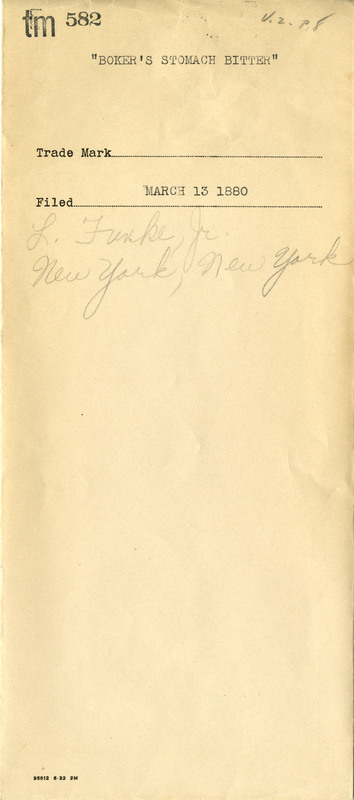 tm 582
V.2. P8
"BOKER'S STOMACH BITTER"
Trade Mark
MARCH 13 1880
Filed
L. Funke, Jr.
New York, New York
95812 6-32 2M